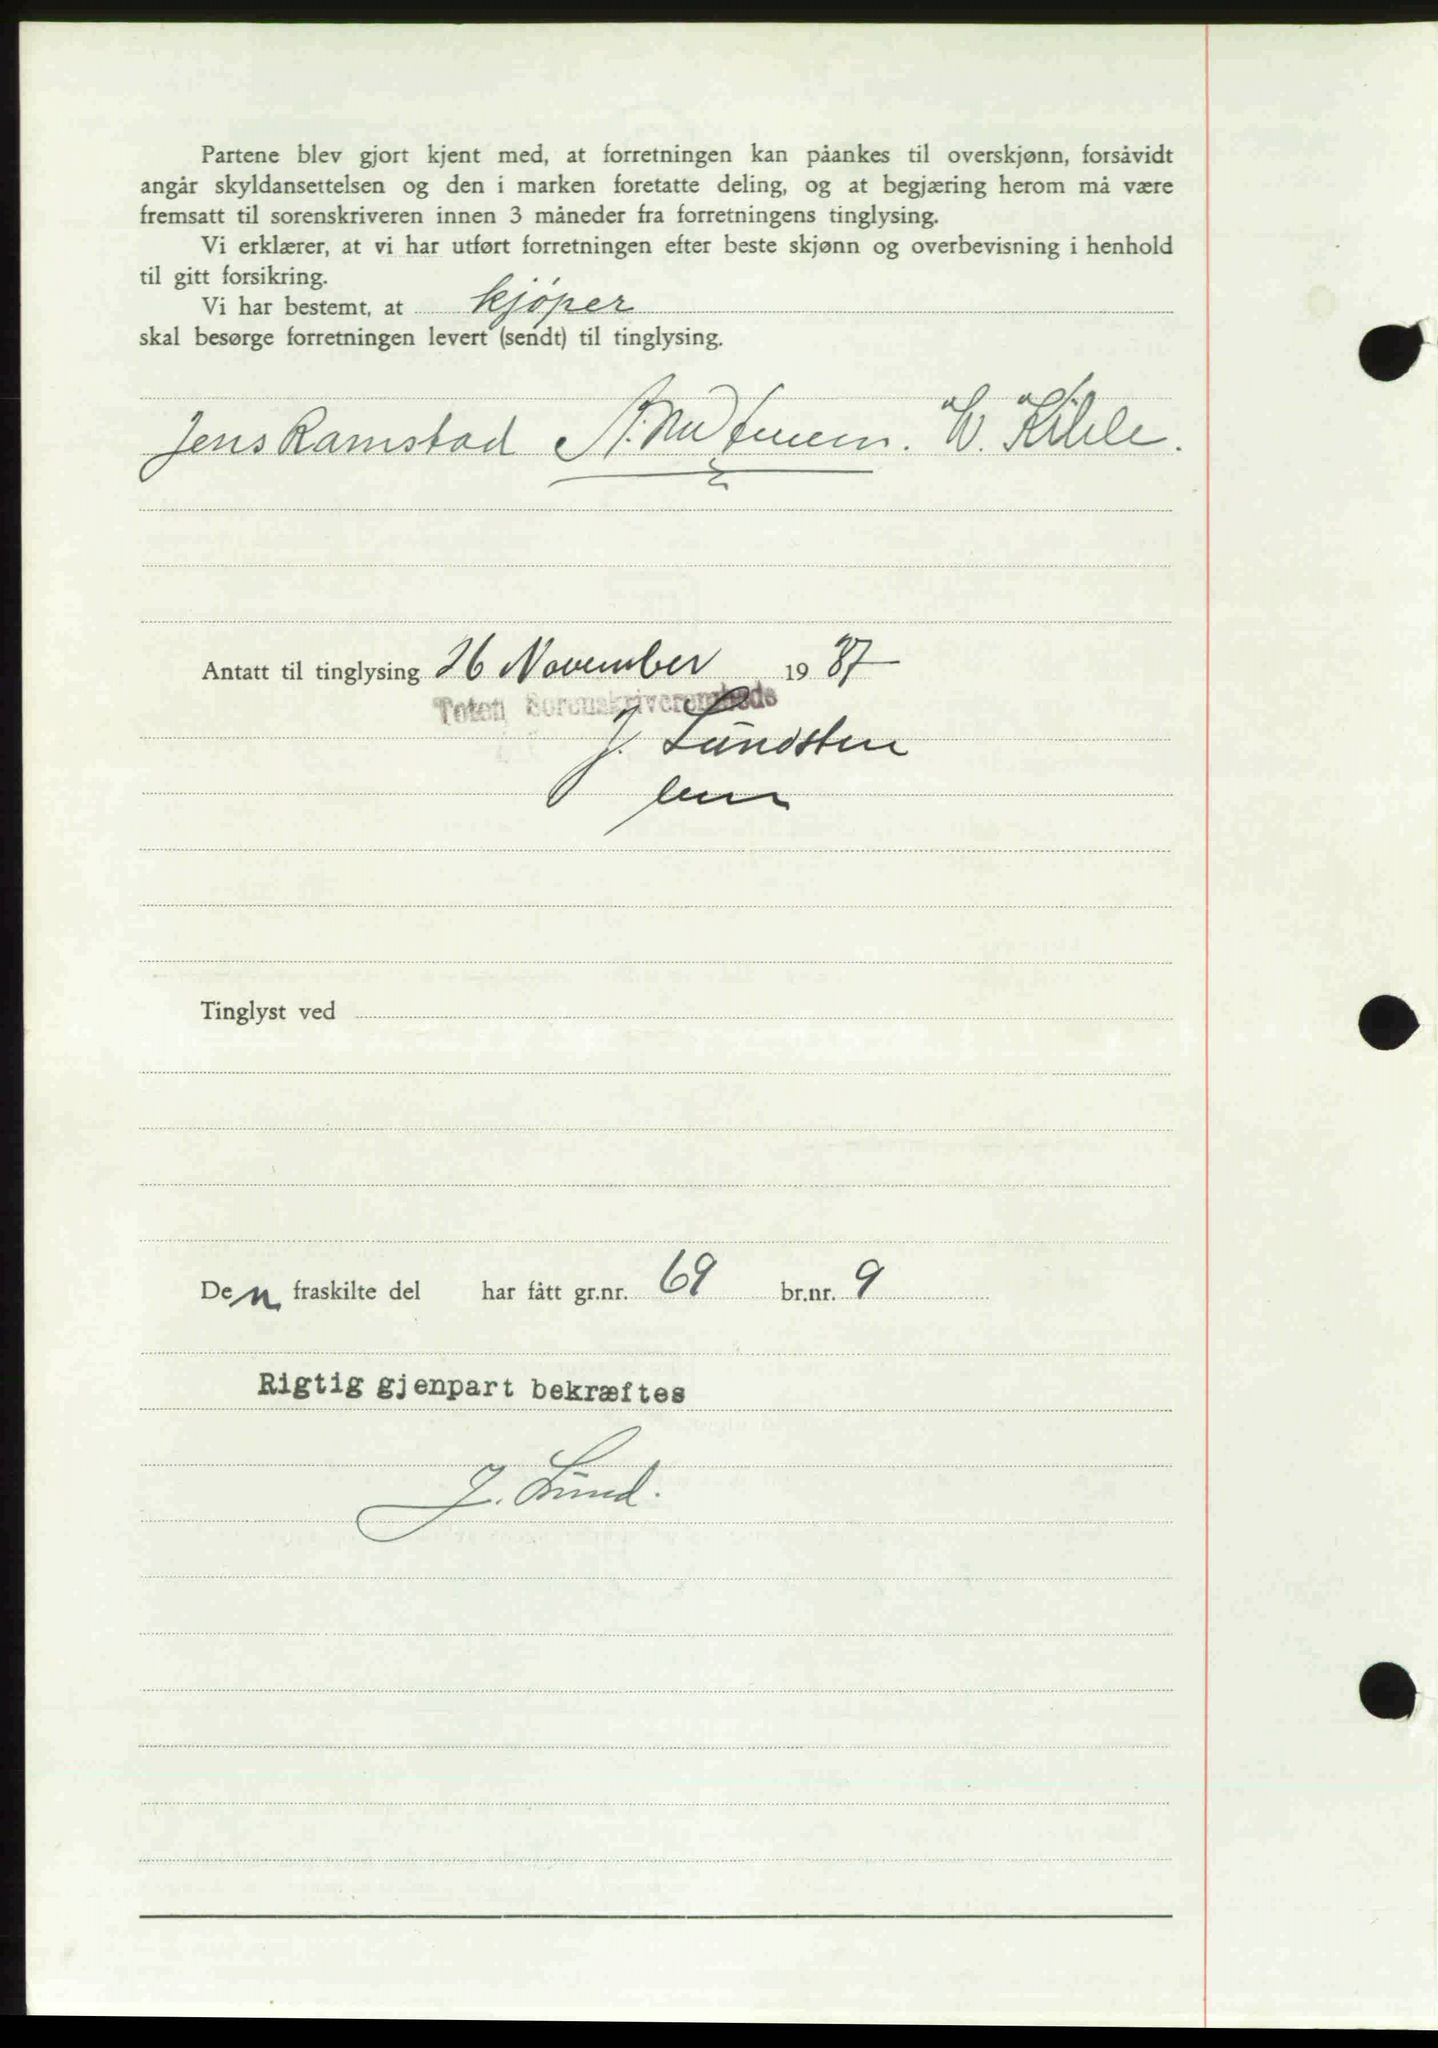 Partene blev gjort kjent med, at forretningen kan påankes til overskjønn, forsåvidt
angår skyldansettelsen og den i marken foretatte deling, og at begjæring herom må være
fremsatt til sorenskriveren innen 3 måneder fra forretningens tinglysing.
Vi erklærer, at vi har utført forretningen efter beste skjønn og overbevisning i henhold
til gitt forsikring.
Vi har bestemt, at kjøper
skal besørge forretningen levert (sendt) til tinglysing.
Jens Ramstad
Antatt til tinglysing 26 November 1937
Toten Sorenskriverembede
J. Lundsten
Tinglyst ved
Den fraskilte del har fått gr.nr. 69 br.nr. 9
Rigtig gjenpart bekræftes
J. Lund.